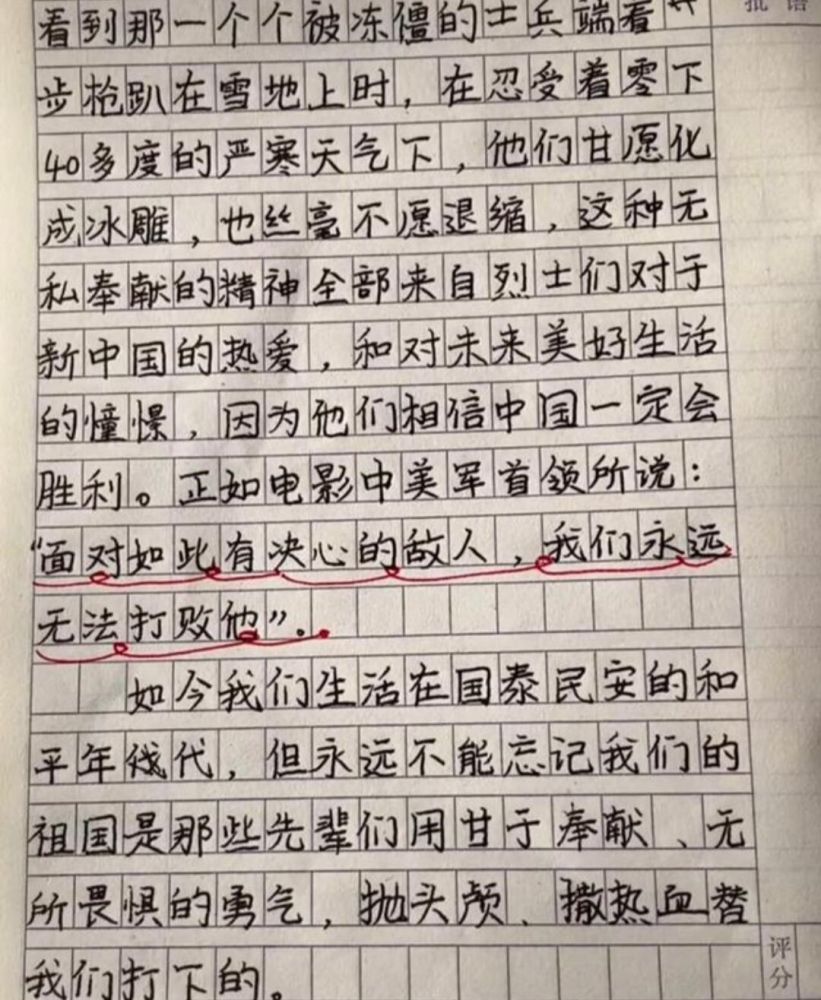 批语
看到那一个个被冻僵的士兵端着
步枪趴在雪地上时，在忍受着零下
40多度的严寒天气下，他们甘愿化
成冰雕，也丝毫不愿退缩，这种无
私奉献的精神全部来自烈士们对于
新中国的热爱，和对未来美好生活
的憧憬，因为他们相信中国一定会
胜利。正如电影中美军首领所说：
“面对如此有决心的敌人，我们永远
无法打败他”。
如今我们生活在国泰民安的和
平年代，但永远不能忘记我们的
祖国是那些先辈们用甘于奉献、无
所畏惧的勇气，抛头颅、撒热血替
我们打下的。
评分